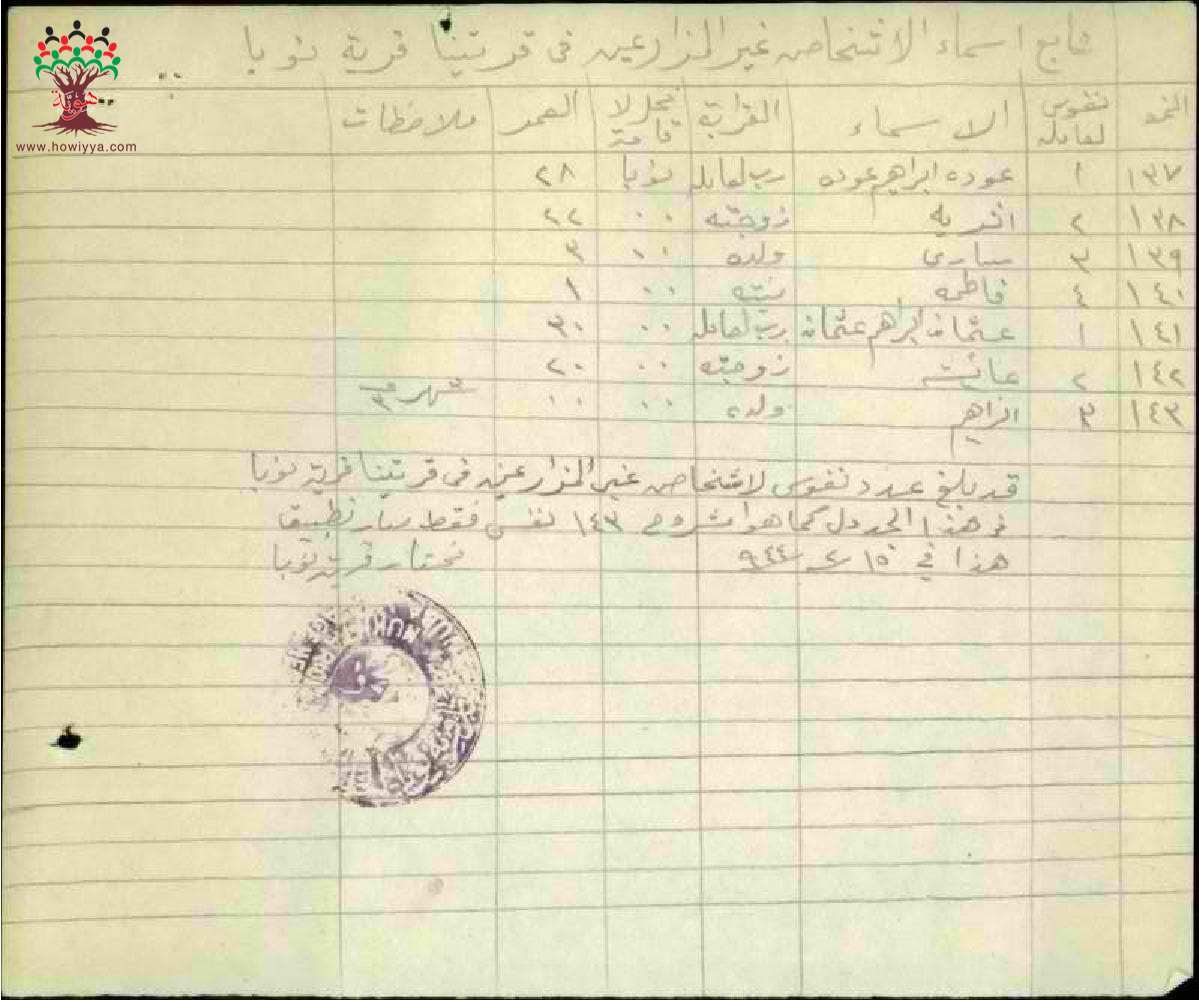 تابع اسماء الاشخاص غير المزارعين في قريتنا قرية نوبا
هوية
www.howiyya.com
النمو نفوس لعامله الاسماء القرابة محل لا قامة العمر ملاحظات
١٣٧ ١ عوده ابراهيم عوده رب لعامله نوبا ٢٨
١٣٨ ٢ زوجته ٠٠ ٢٢
١٣٩ ٣ ساري ولده ٠٠ ٣
١٤٠ ٤ فاطمه بنته ٠٠ ١
١٤١ ١ عثمان ابراهيم عثمان رب لعامله ٠٠ ٣٠
١٤٢ ٢ عائشه زوجته ٠٠ ٢٠
١٤٣ ٣ ابراهيم ولده ٠٠ ٠٠ شهر ٣
قد بلغ عدد نفوس لاشخاص غير المزارعين في قريتنا قرية نوبا
في هذا الجدول كما هو مشروح ١٤٣ نفس فقط
هذا في ١٥ ٢ ٩٤٤ مختار قرية نوبا
MUKHTAR